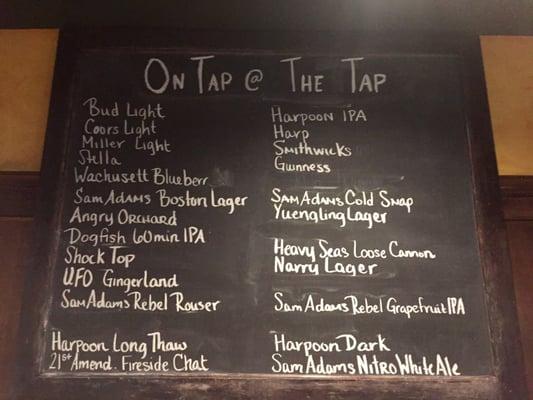 On Tap @ The Tap
Bud Light
Coors Light
Miller Light
Stella
Wachusett Blueberr
Sam Adams Boston Lager
Angry Orchard
Dogfish 60 min IPA
Shock Top
UFO Gingerland
Sam Adams Rebel Rouser
Harpoon Long Thaw
21st Amend. Fireside Chat
Harpoon IPA
Harp
Smithwicks
Guinness
Sam Adams Cold Snap
Yuengling Lager
Heavy Seas Loose Cannon
Narry Lager
Sam Adams Rebel Grapefruit IPA
Harpoon Dark
Sam Adams Nitro White Ale